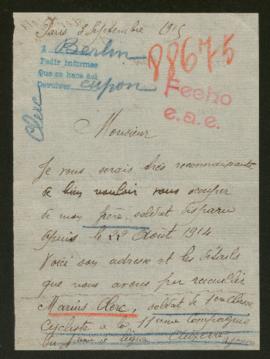 Paris 2 Septembre 1915
a Berlin
Pedir informes
Que se hace aqui
Devolver cupon
88675
Fecho
e.a.e.
Clerc
Monsieur
Je vous serais très reconnaissante
de bien vouloir vous occuper
de mon frère, soldat disparu
depuis le 22 Août 1914
Voici son adresse et les détails
que nous avons pu recueillir
Marius Clerc, soldat de 1ère classe
Cycliste à la 11ème Compagnie